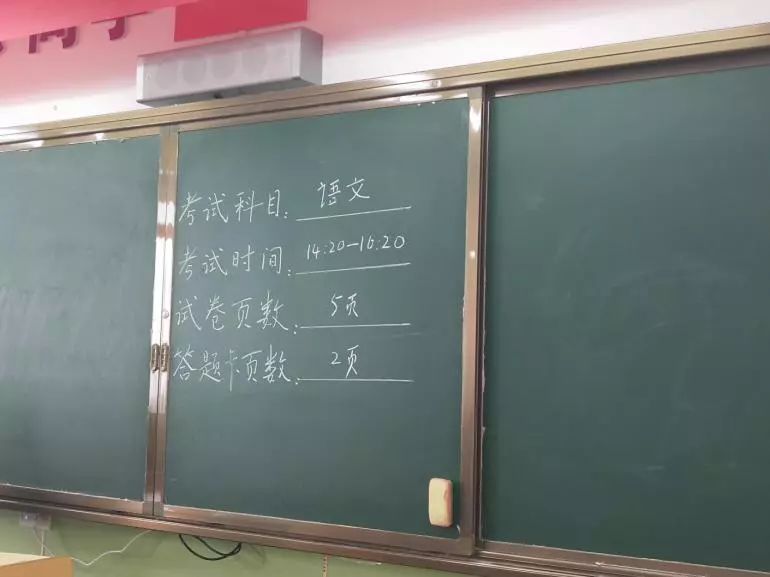 考试科目：语文
考试时间：14:20-16:20
试卷页数：5页
答题卡页数：2页